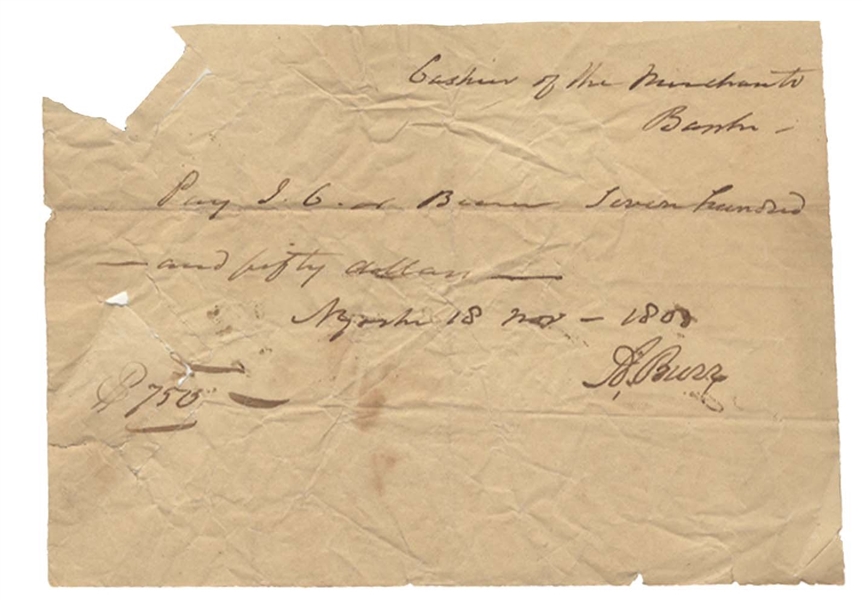 Cashier of the Merchants
Bank -
Pay J. C. or Bearer Seven hundred
— and fifty dollars —
Nyork 18 Nov – 180
A. Burr
$ 750 —